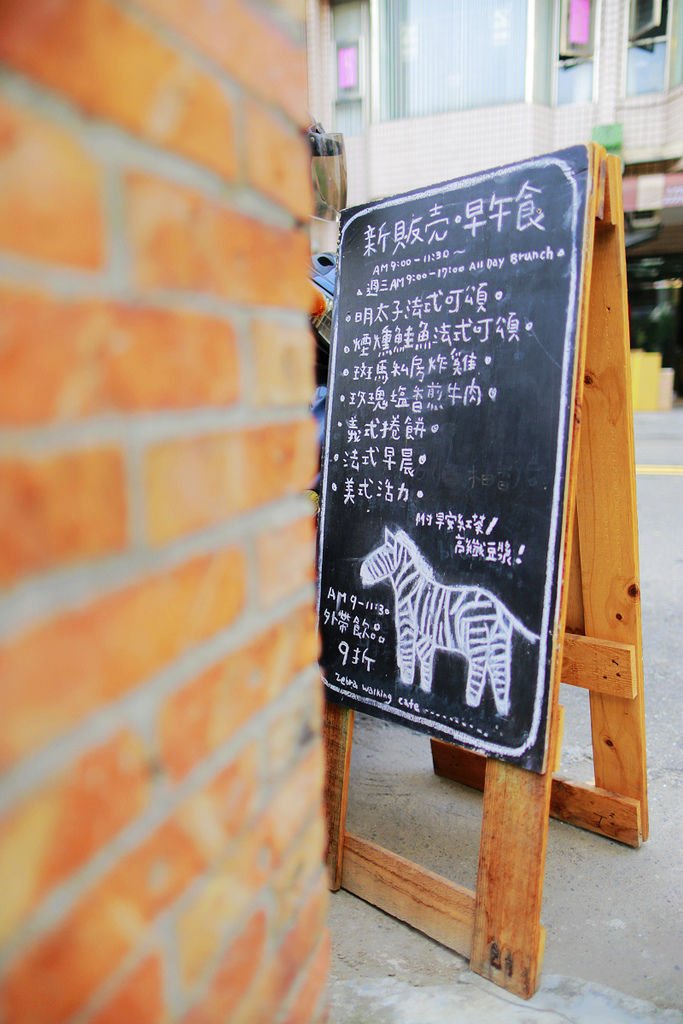 新販売·早午食
AM 9:00-11:30~
▲週三AM9:00-17:00 All Day Brunch▲
明太子法式可頌。
煙燻鮭魚法式可頌。
斑馬私房炸雞。
玫瑰塩香煎牛肉。
義式捲餅。
法式早晨。
美式活力。
My早安紅茶!
高纖豆漿!
AM 9-11:30
外帶飲品
9折
Zebra walking cafe